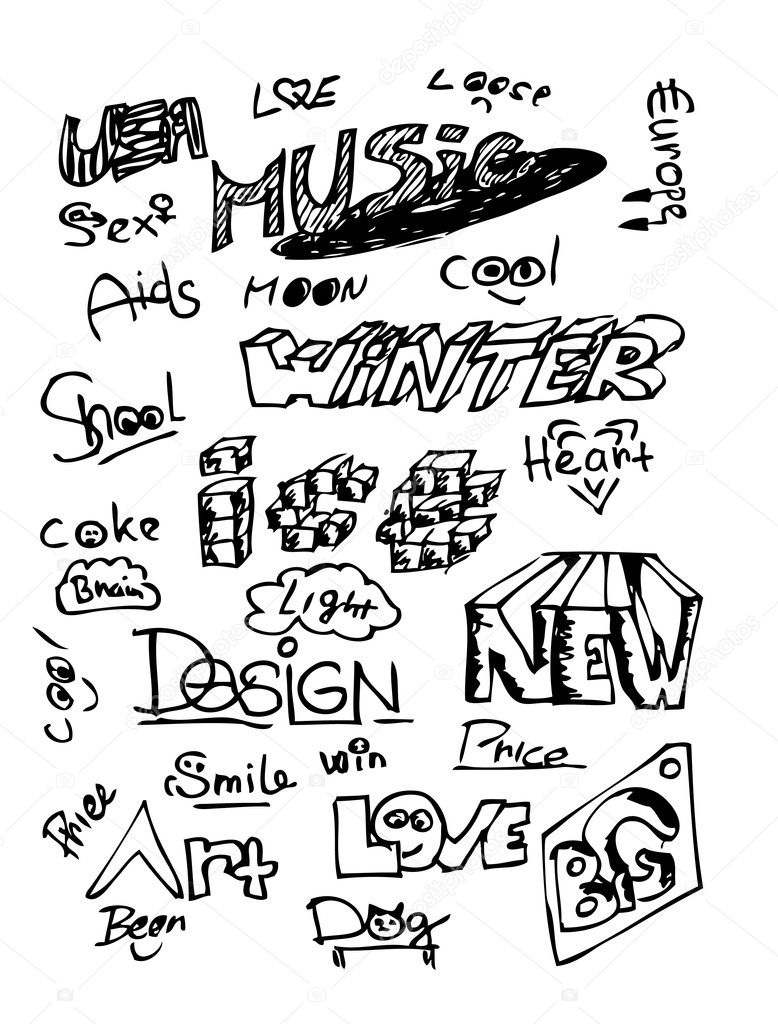 USA
LOVE
Loose
Europe
MUSic
Sex
Aids
MOON
cool
WiNTER
Shool
Heart
ice
coke
Brain
Light
NEW
cool
DesiGN
Price
Smile
win
Price
Art
LOVE
BiG
Bean
Dog
depositphotos